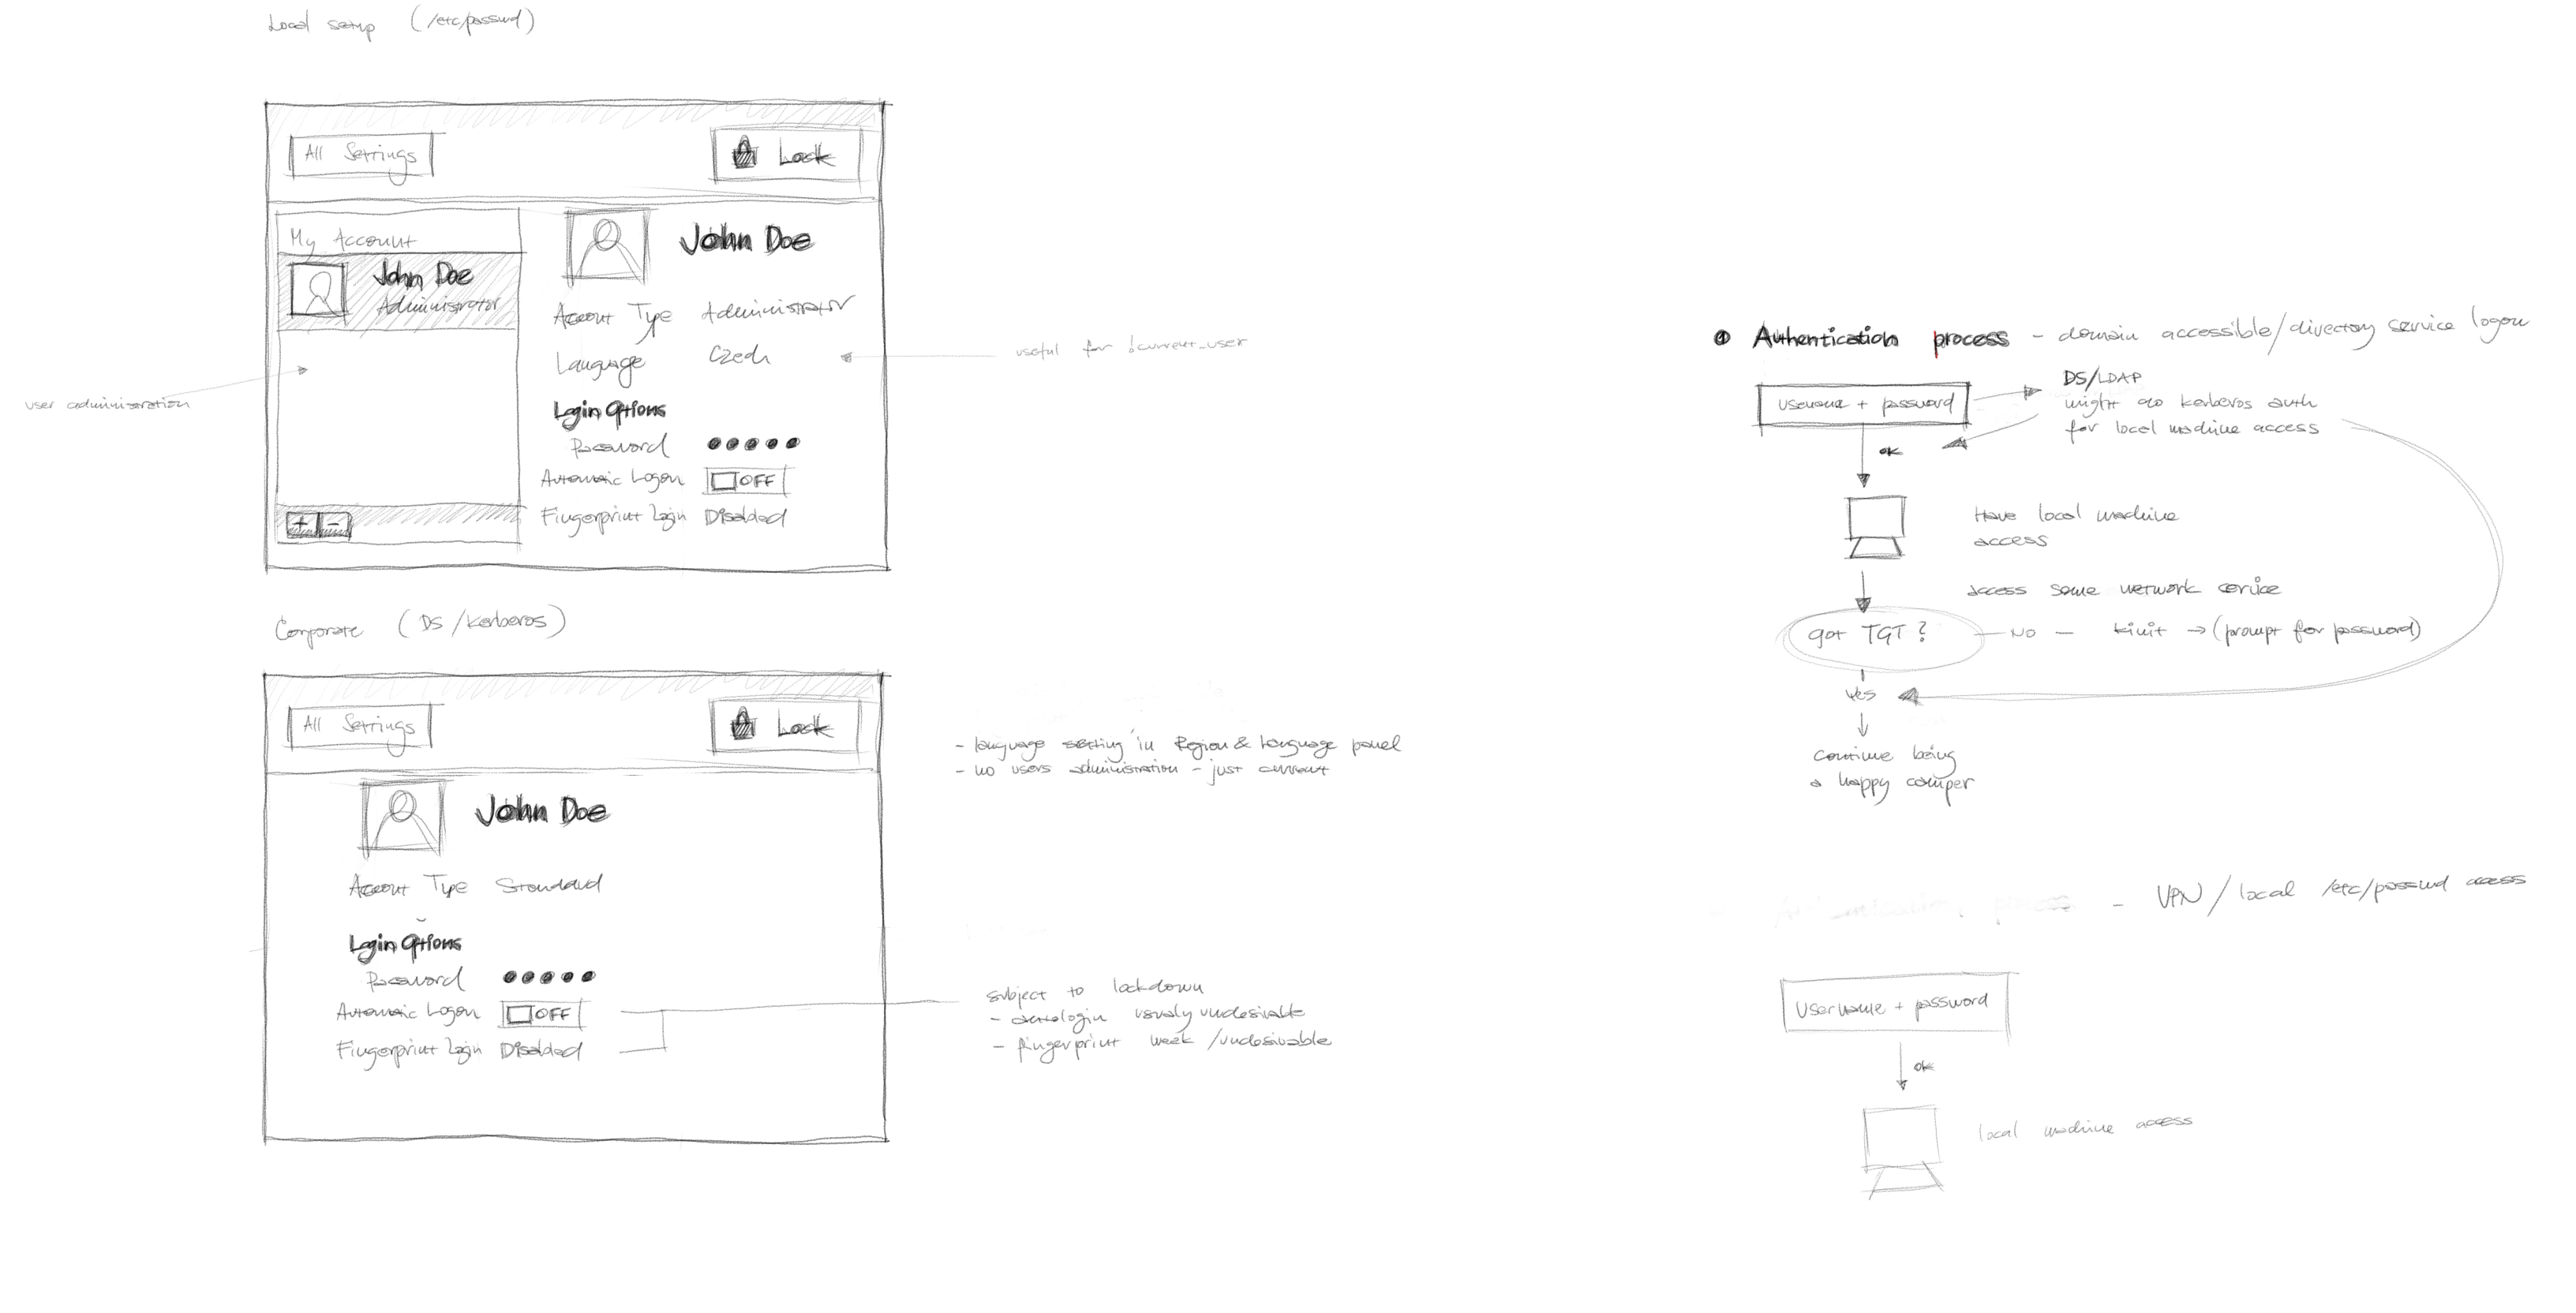 Local setup (/etc/passwd)
All Settings
Lock
My Account
John Doe
Administrator
John Doe
Account Type Administrator
Language Czech
Login Options
Password
Automatic Logon OFF
Fingerprint Login Disabled
+ -
user administration
useful for !current_user
Corporate (DS/Kerberos)
All Settings
Lock
John Doe
Account Type Standard
Login Options
Password
Automatic Logon OFF
Fingerprint Login Disabled
- language setting in Region & Language panel
- no users administration - just current
subject to lockdown
- autologin usualy undesirable
- fingerprint weak /undesirable
1 Authentication process - domain accessible/directory service logon
username + password
DS/LDAP
might do kerberos auth
for local machine access
OK
Have local machine
access
access some network service
got TGT?
- NO - kinit → (prompt for password)
yes
Continue being
a happy camper
Authentication process - VPN / local /etc/passwd access
Username + password
OK
local machine access